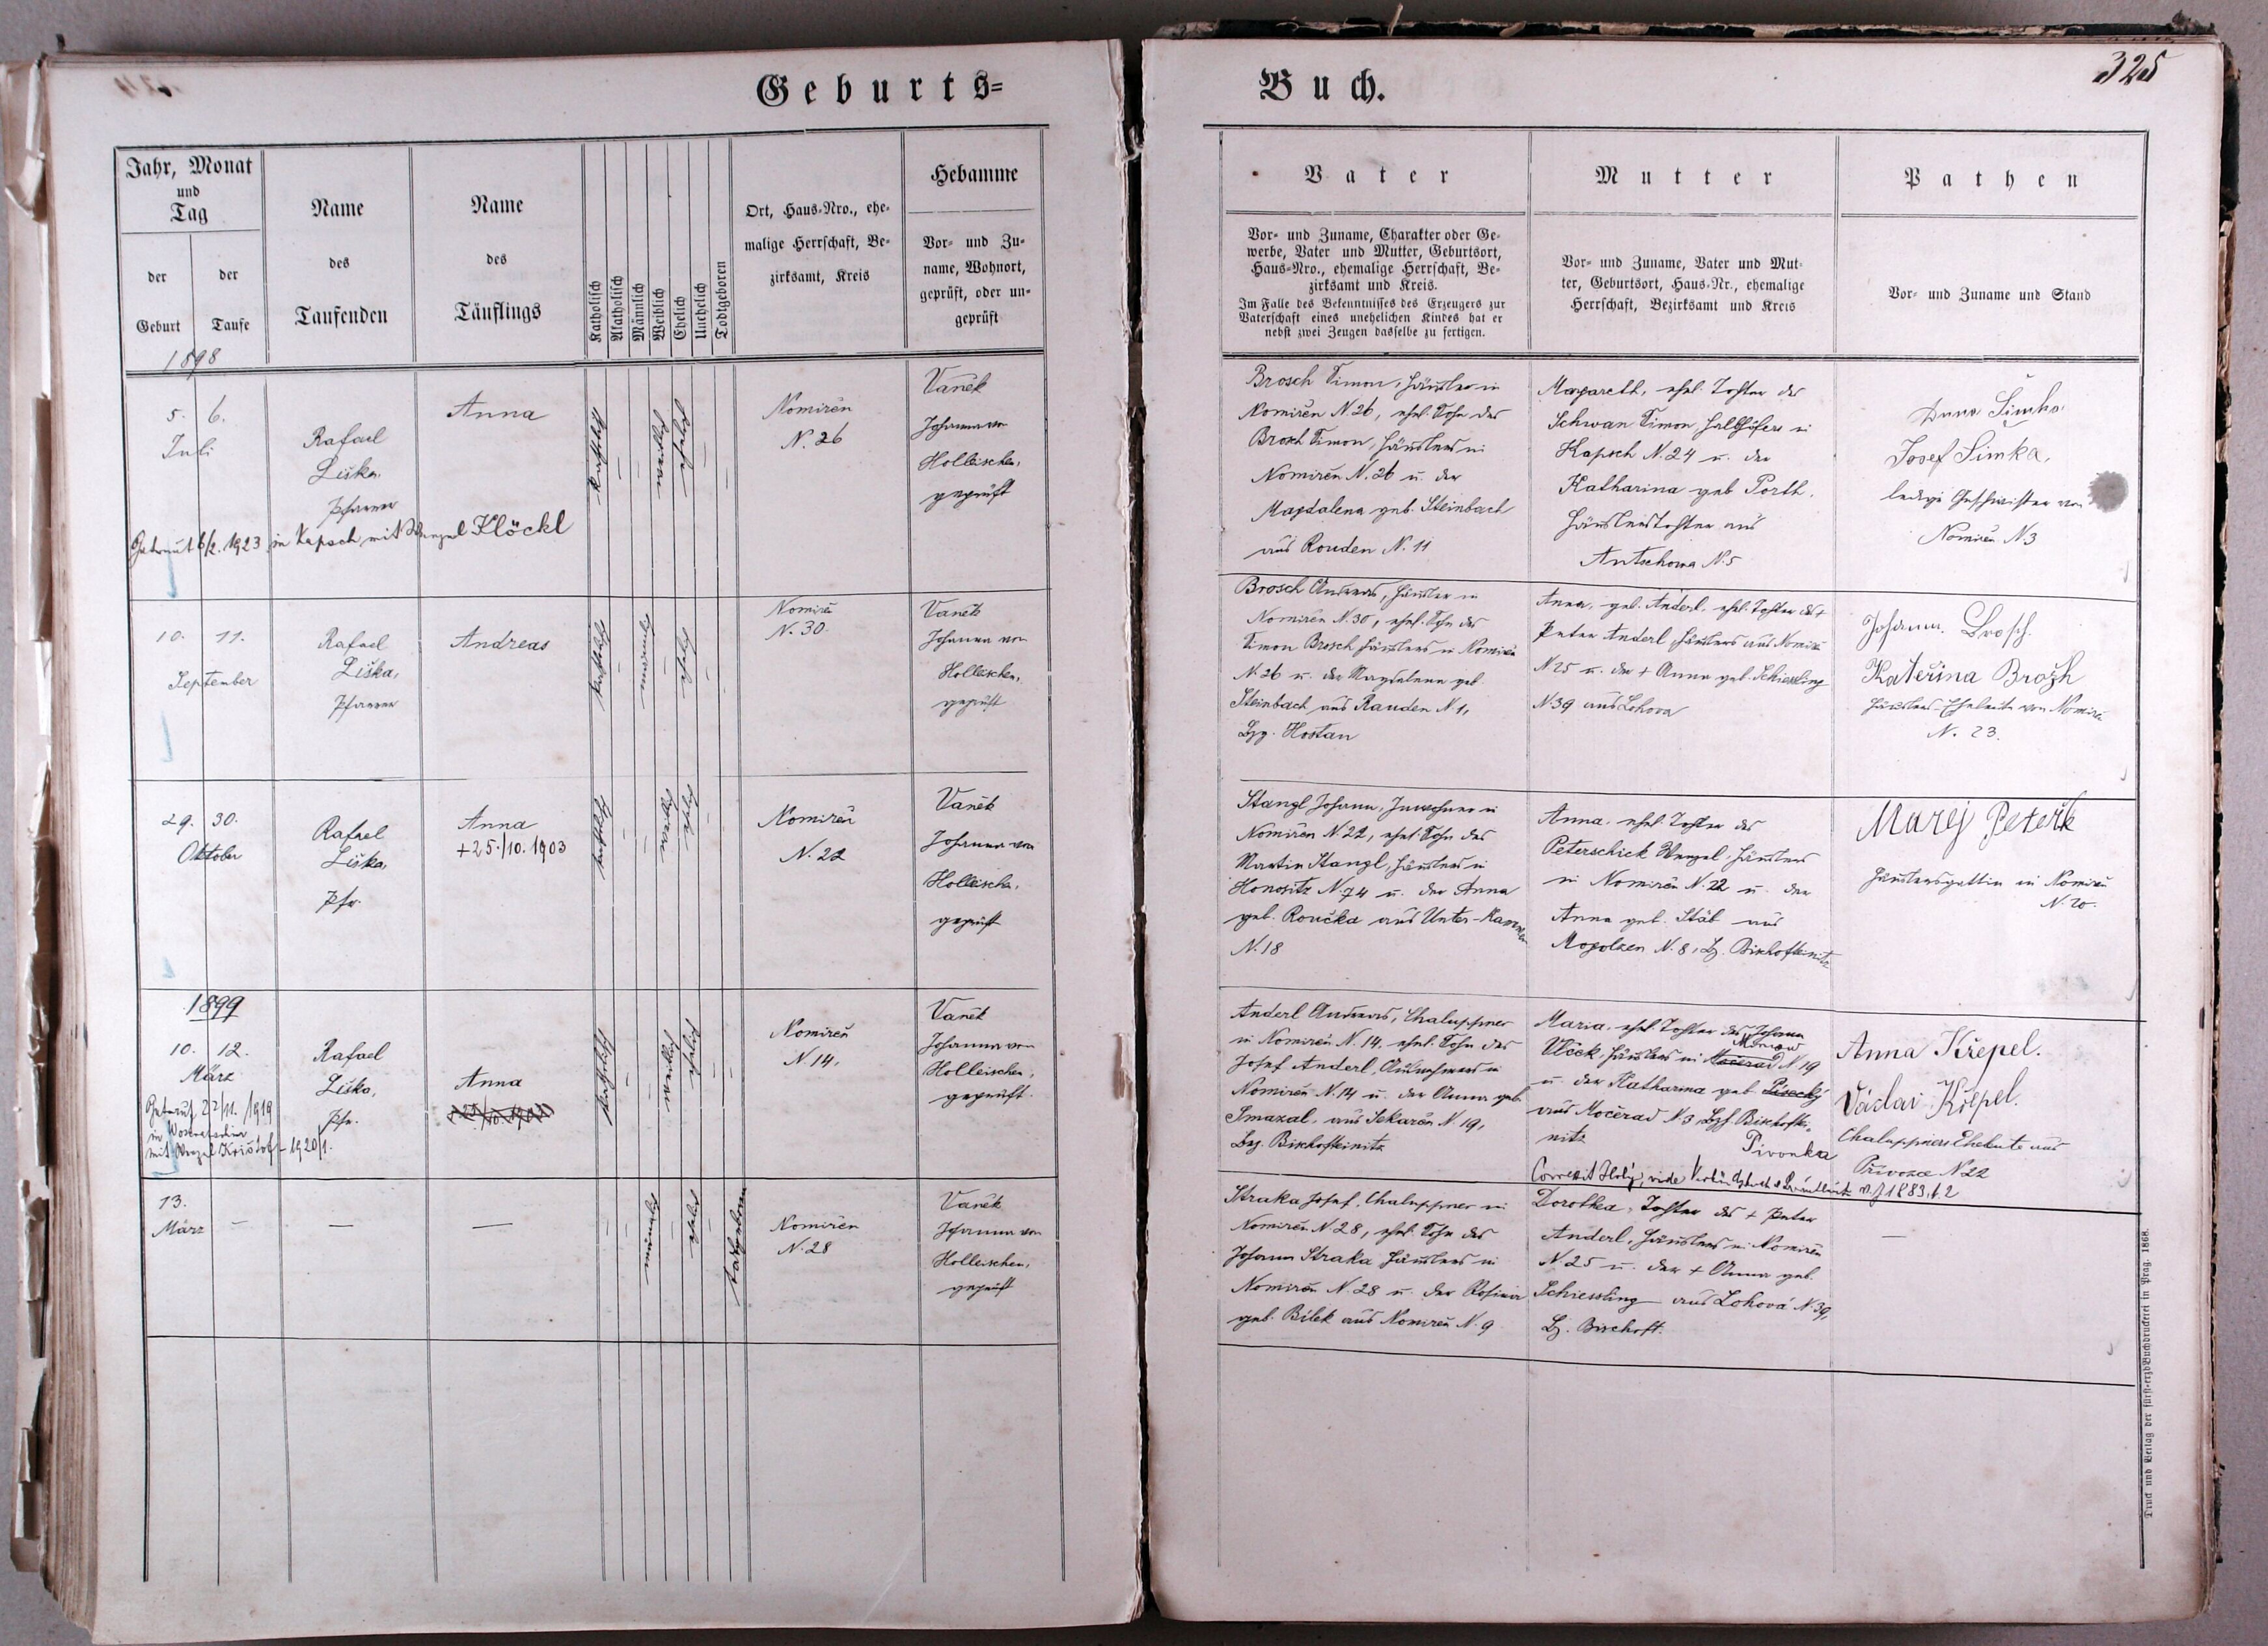 Geburts=
Jahr, Monat
und
Tag
der
Geburt
der
Taufe
Name
des
Taufenden
Name
des
Täuflings
Katholisch
Akatholisch
Männlich
Weiblich
Ehelich
Unehelich
Todtgeboren
Ort, Haus-Nro., ehe-
malige Herrschaft, Be-
zirksamt, Kreis
Hebamme
Vor- und Zu-
name, Wohnort,
geprüft, oder un-
geprüft
1898
5. 6.
Juli
Rafael
Liška,
Pfarrer
Anna
katholisch
weiblich
ehelich
Nomiřen
N. 26
Vaněk
Johanna von
Holleischen,
geprüft
Getraut 6/2. 1923 in Kapsch mit Wenzel Klöckl
10. 11.
September
Rafael
Liška,
Pfarrer
Andreas
katholisch
männlich
ehelich
Nomiřen
N. 30.
Vaněk
Johanna von
Holleischen,
geprüft
29. 30.
Oktober
Rafael
Liška,
Pfr.
Anna
+25./10. 1903
katholisch
weiblich
ehelich
Nomiřen
N. 22
Vaněk
Johanna von
Holleischen,
geprüft
1899
10. 12.
März
Rafael
Liška,
Pfr.
Anna
katholisch
weiblich
ehelich
Nomiřen
N. 14,
Vaněk
Johanna von
Holleischen,
geprüft.
Getraut 22/11. 1919
in
mit Wenzel Krištof - 1920/1.
13.
März
— — —
männlich
ehelich
todtgeboren
Nomiřen
N. 28
Vaněk
Johanna von
Holleischen,
geprüft
Buch.
325
Vater
Vor- und Zuname, Charakter oder Ge-
werbe, Vater und Mutter, Geburtsort,
Haus-Nro., ehemalige Herrschaft, Be-
zirksamt und Kreis.
Im Falle des Bekenntnisses des Erzeugers zur
Vaterschaft eines unehelichen Kindes hat er
nebst zwei Zeugen dasselbe zu fertigen.
Mutter
Vor- und Zuname, Vater und Mut-
ter, Geburtsort, Haus-Nr., ehemalige
Herrschaft, Bezirksamt und Kreis
Pathen
Vor- und Zuname und Stand
Brosch Simon, Häusler in
Nomiřen N. 26, ehel. Sohn des
Brosch Simon, Häuslers in
Nomiřen N. 26 u. der
Magdalena geb. Steinbach
aus Rouden N. 11
Margareth, ehel. Tochter des
Schwan Simon, Halbhöfers in
Kapsch N. 24 u. der
Katharina geb Porth.
Häuslerstochter aus
Antschowa N. 5
Anna Šimka
Josef Simka,
ledige Geschwister von
Nomiřen N 3
Brosch Andreas, Häusler in
Nomiřen N. 30, ehel. Sohn des
Simon Brosch Häuslers in Nomiřen
N. 26 u. der Magdalena geb.
Steinbach aus Rauden N. 1,
Bzg. Hostau
Anna, geb. Anderl. ehel. Tochter des +
Peter Anderl Häuslers aus Nomiřen
N 25 u. der + Anna geb. Schiessling
N. 39 aus Lohova
Johann. Brosch.
Kateřina Brožh
Häuslers-Eheleute von Nomiřen
N. 23.
Stangl Johann, Inwohner in
Nomiřen N. 22, ehel. Sohn des
Martin Stangl, Häuslers in
Honositz N. 74 u. der Anna
geb. Roučka aus Unter-Kamenzen
N. 18
Anna, ehel. Tochter des
Peterschick Wenzel, Häuslers
in Nomiřen N. 22 u. der
Anna geb. Stáb aus
Mogolzen N. 8, Bz. Bischofteinitz
Marej Peteřik
Häuslersgattin in Nomiřen
N. 20.
Anderl Andreas, Chaluppner
in Nomiřen N. 14, ehel. Sohn des
Josef Anderl, Ausnehmers in
Nomiřen N. 14 u. der Anna geb
Smazal, aus Sekařen N. 19,
Bzg. Bischofteinitz
Maria, ehel. Tochter des Johann
Vlček, Häuslers in Močerad N 19
u. der Katharina geb Písecký
aus Močerad N 3, Bzf. Bischoftei-
nitz
Pivonka
Anna Křepel.
Václav Křepel.
Chaluppners Eheleute aus
Přivozec N 22
Straka Josef, Chaluppner in
Nomiřen N. 28, ehel. Sohn des
Johann Straka Häuslers in
Nomiřen N. 28 u. der Rosina
geb. Bílek aus Nomiřen N. 9
Dorothea, Tochter des + Peter
Anderl, Häuslers in Nomiřen
N 25 u. der + Anna geb.
Schiessling aus Lohová N. 39,
Bz. Bischoft.
—
Druck und Verlag der fürst-erzb. Buchdruckerei in Prag. 1868.